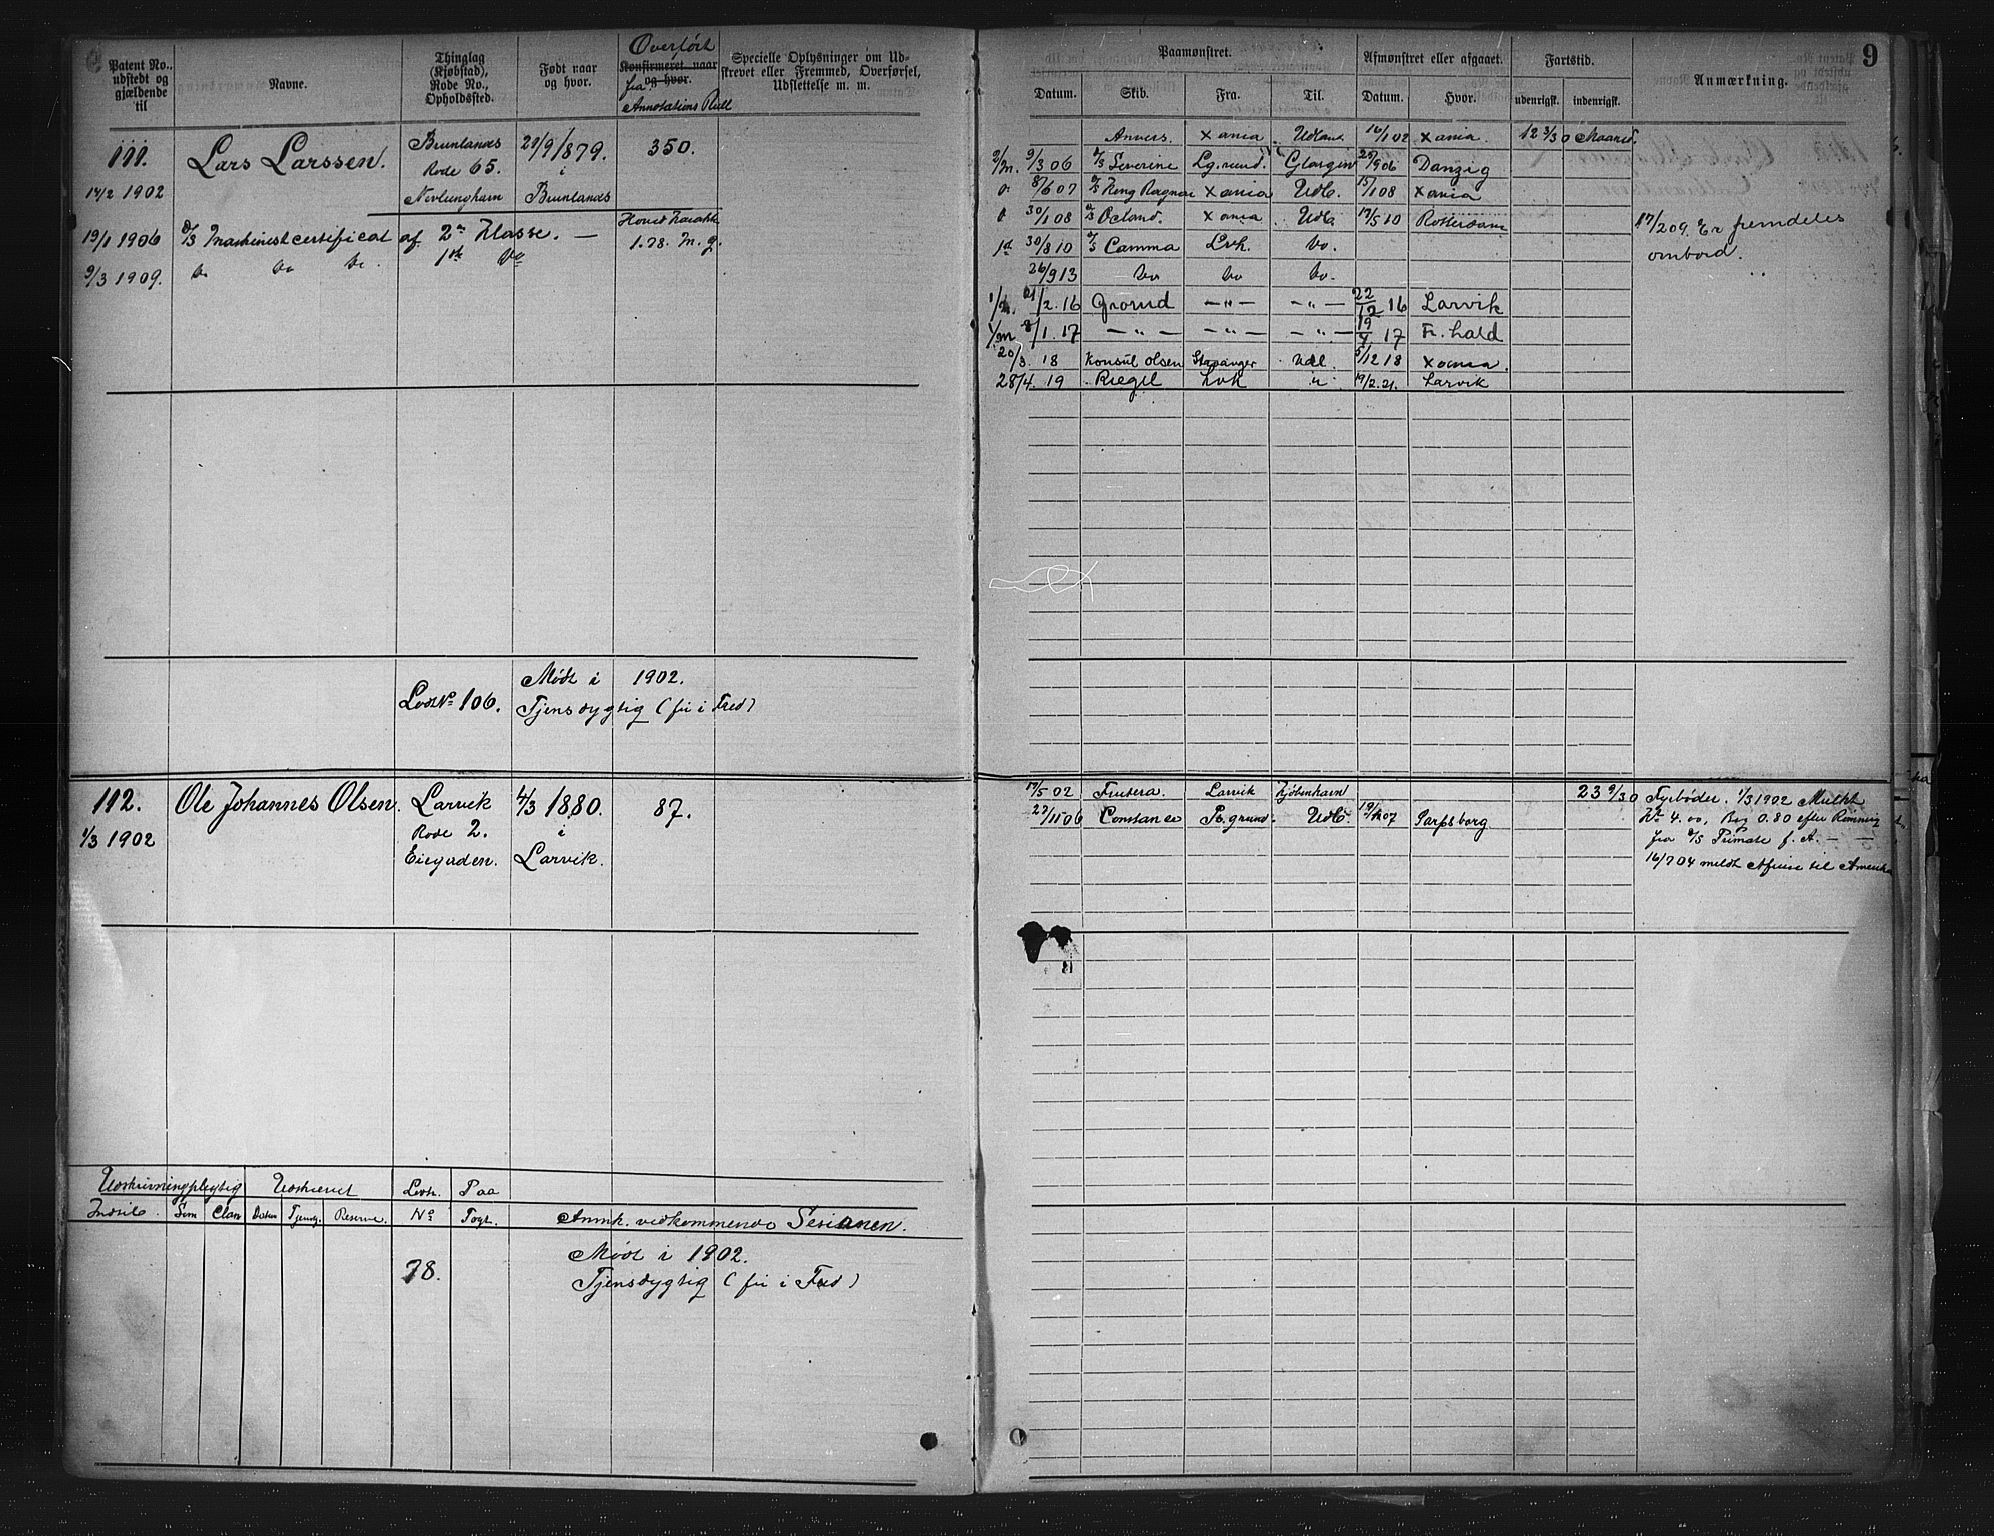 9
Patent No., udstedt og gjældende til
Navne.
Thinglag (Kjøbstad), Rode No., Opholdssted.
Født naar og hvor.
Overført
Konfirmeret naar og hvor.
fra
Annotations Rull
Specielle Oplysninger om Udstrevet eller Fremmed, Overførsel, Udslettelse m. m.
Paamønstret.
Afmønstret eller afgaaet.
Fartstid.
Anmærkning.
Datum. Skib. Fra. Til. Datum. Hvor. udenrigsk. indenrigsk.
111.
14/2 1902
Lars Larssen.
Brunlanes
Rode 65.
Nevlunghavn
21/9 1879.
i
Brunlanes
350.
19/1 1906 D/S Maskinistcertificat af 2den Klasse. —
Hoved karakt.
1.78. M. g.
9/3 1909. do do do. 1ste do
Anvers Xania Udland 16/1 02 Xania. 12 3/30 Maaned
2/m. 9/3 06 D/S Severine Lg.sund. Glasgow 25/9 06 Danzig
do 8/6 07 D/S Kong Ragnar Xania Udl. 15/1 08 Xania
do 30/1 08 D/S Ocland. Xania Udl. 17/5 10 Rotterdam
17/2 09. Er fremdeles
ombord.
1st 30/8 10 D/S Camma Lvk. do.
26/9 13 do do do.
1/m. 21/2. 16 Gronud — " — — " — 22/12 16 Larvik
1/m 8/1. 17 — " — — " — — " — 19/4 17 Fr. hald
20/3. 18 Konsul Olsen Stavanger Udl. 5/12 18 Xania.
28/4. 19 Riegel Lvk " 19/2. 21. Larvik
Lodd No 106.
Mødt i 1902.
Tjensdygtig (fri i Fred)
112.
1/3 1902
Ole Johannes Olsen.
Larvik
Rode 2.
Eiegaden.
4/3 1880.
i
Larvik.
87.
17/5 02 Frutera. Larvik Kjøbenhavn 23 9/30
27/11 06 Constance Po. grund. Udl. 19/1 07 Sarpsborg
Fyrbøder. 1/3 1902 Mulkt
Kr 4.00, Bog 0.80 efter Rømning
fra D/S Primate f. A. — —
16/7 04 meldt Afreise til Amerika
Udskrivningsplegtig Udskrevet Lodtr. Paa
Indrul. Som Clan Datum Tjeneste Reserve. No Togt. Anmk. vedkommende Sesionen.
78.
Mødt i 1902.
Tjensdygtig (fri i Fred)